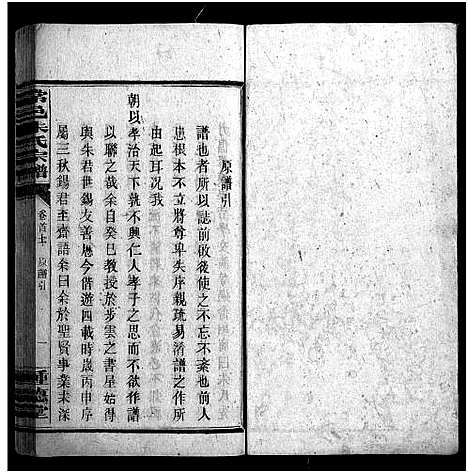 原譜引
譜也者所以誌前啟後使之不忘不紊也前人
患根本不立將尊卑失序親疏易淆譜之作所
由起耳况我
朝以孝治天下孰不興仁人孝子之思而不欲作譜
以聯之哉余自癸巳教授於步雲之書屋始得
與朱君世錫友善歷今偕遊四載時歲丙申序
屬三秋錫君至齋語余曰余於聖賢事業未深
朱氏宗譜
卷首
原譜引
一